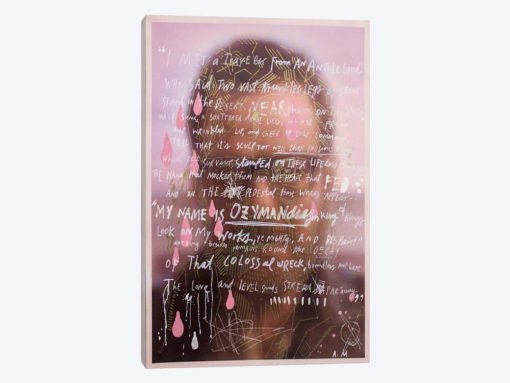 "I MET A TRAVELLER FROM AN ANTIQUE LAND
WHO SAID TWO VAST TRUNKLESS LEGS OF STONE
STAND IN THE DESERT. NEAR THEM ON THE
HALF SUNK, A SHATTERED VISAGE LIES, WHOSE
AND WRINKLED LIP, AND SNEER OF COLD COMMAND
TELL THAT IT'S SCULPTOR WELL THOSE PASSIONS
WHICH YET SURVIVE, STAMPED ON THESE LIFELESS
THE HAND THAT MOCKED THEM AND THE HEART THAT FED
AND ON THE PEDESTAL THESE WORDS APPEAR
"MY NAME IS OZYMANDIAS, KING OF KINGS
LOOK ON MY WORKS, YE MIGHTY, AND DESPAIR"
NOTHING BESIDE REMAINS. ROUND THE DECAY
OF THAT COLOSSAL WRECK, BOUNDLESS AND BARE
THE LONE AND LEVEL SANDS STRETCH FAR AWAY"
A.M